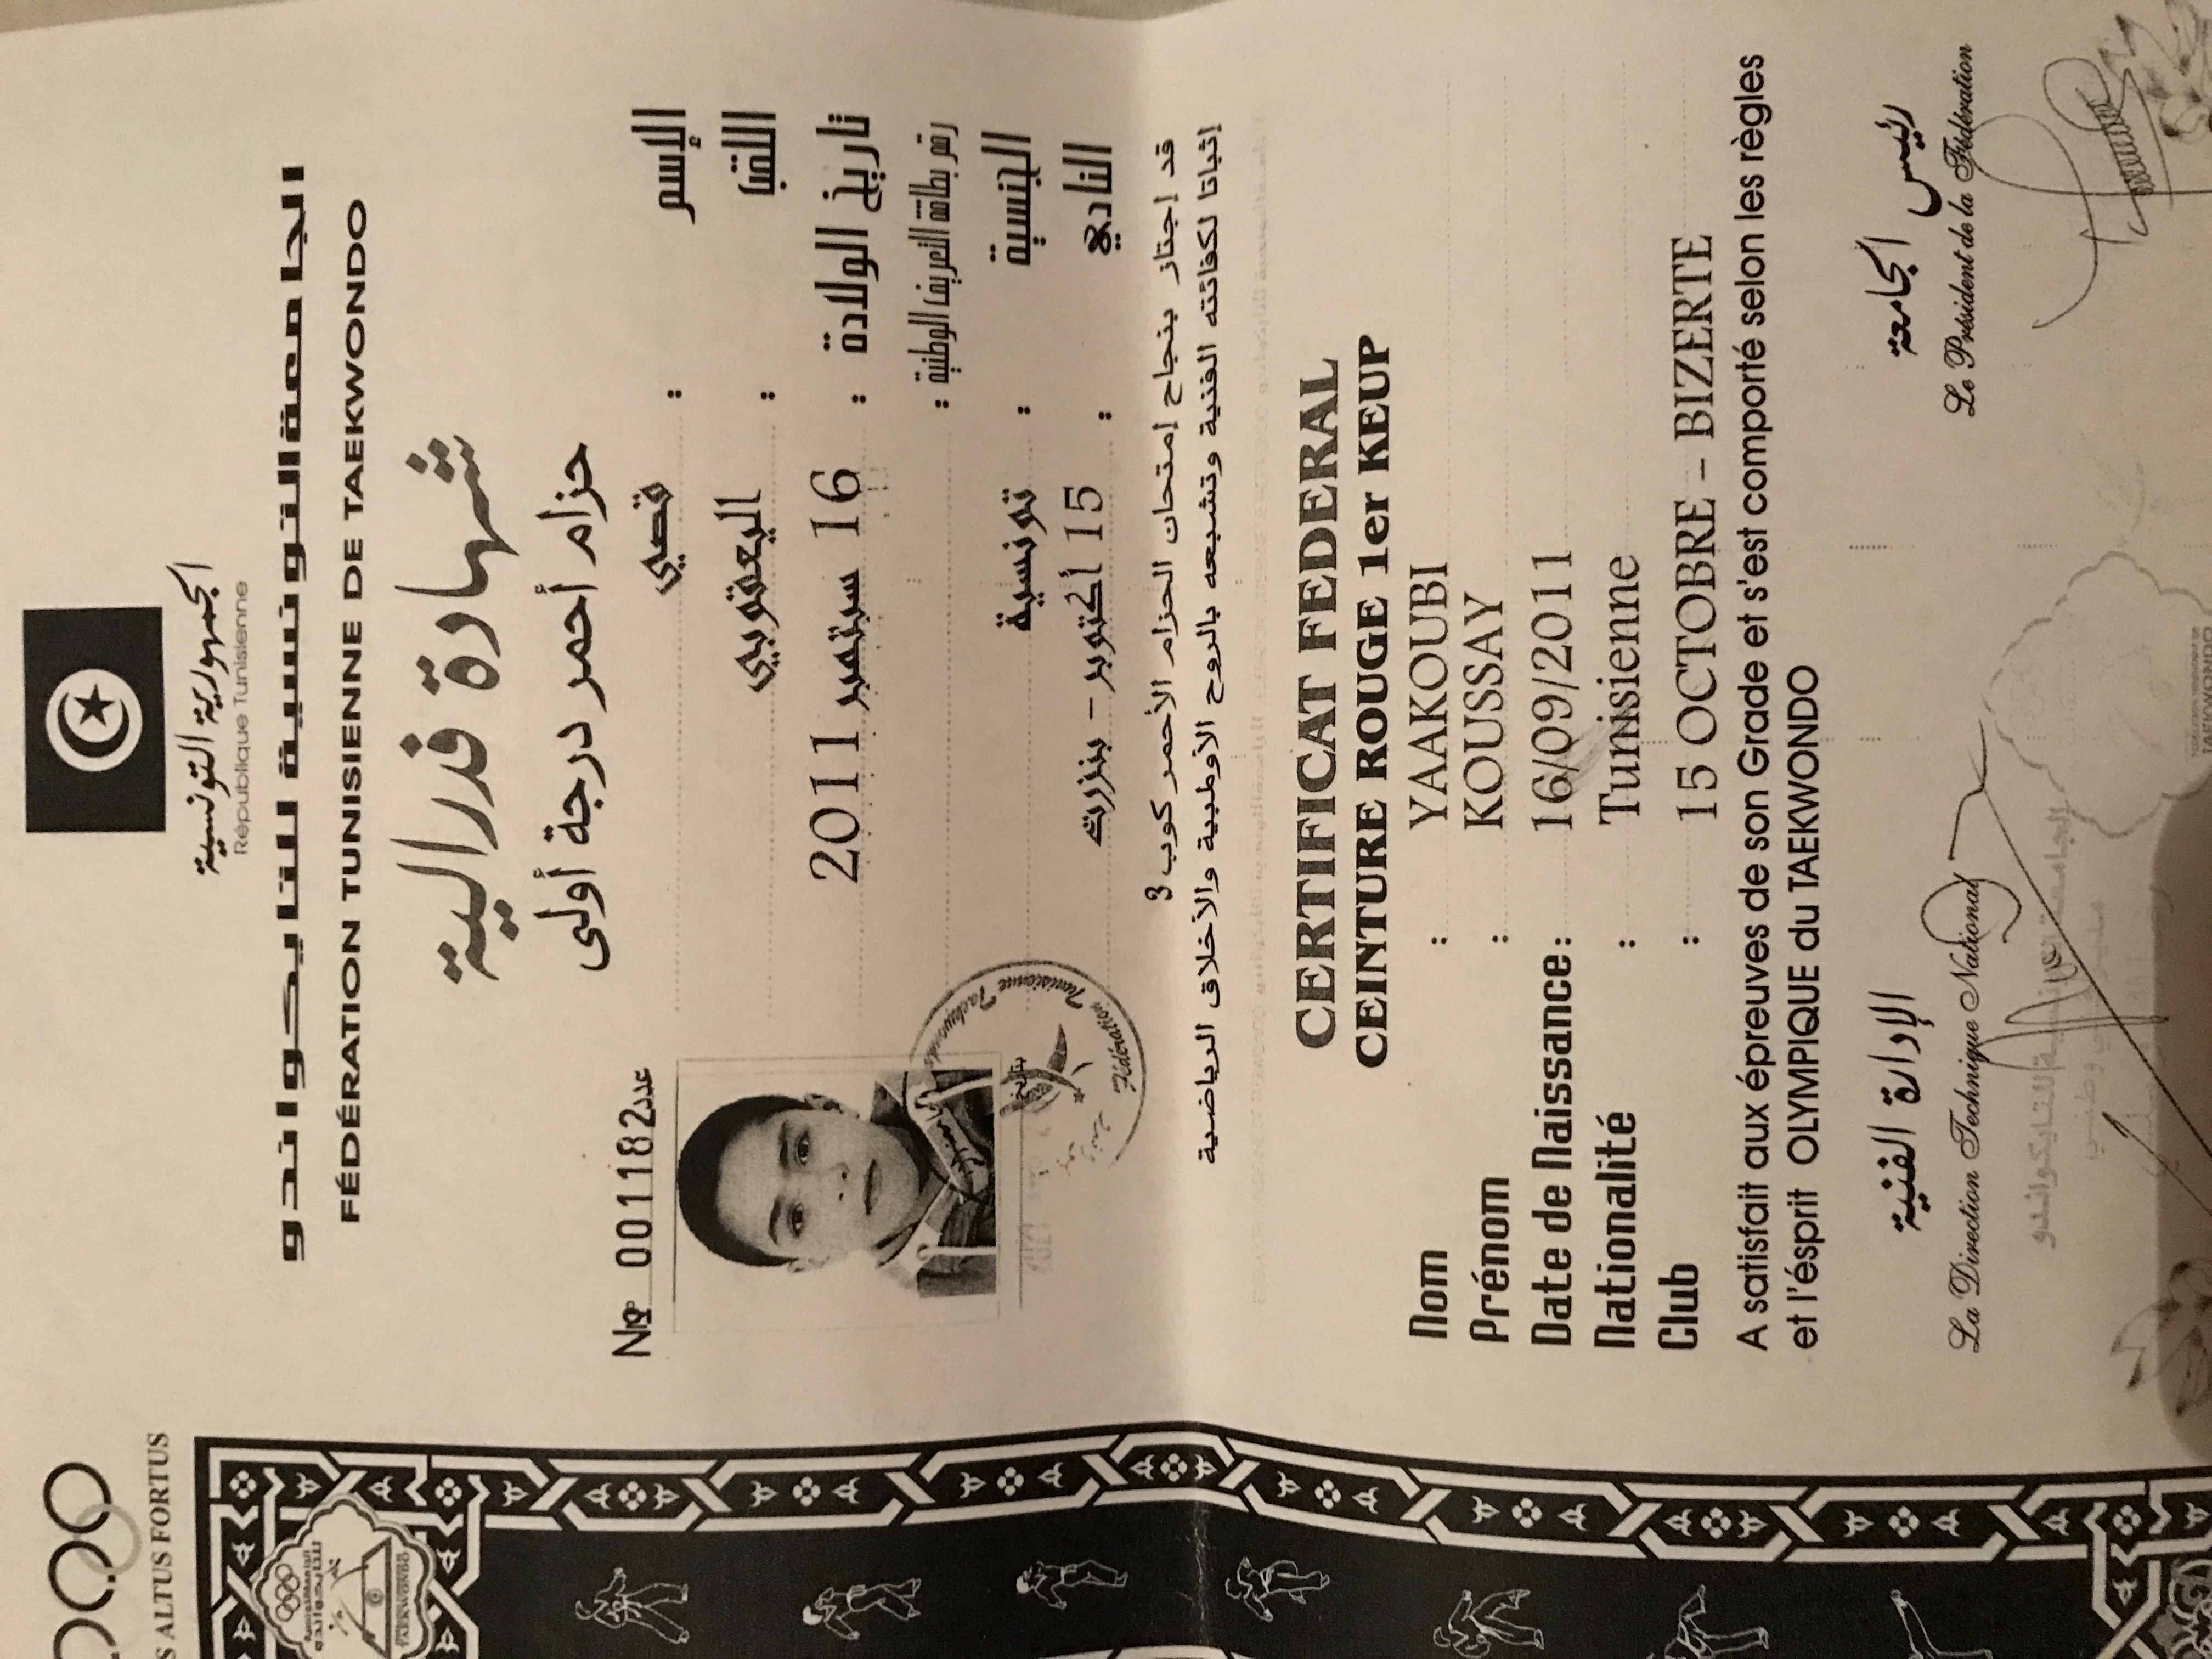 الجمهورية التونسية
République Tunisienne
الجامعة التونسية للتايكواندو
FÉDÉRATION TUNISIENNE DE TAEKWONDO
شهادة فدرالية
حزام أحمر درجة أولى
عدد 001182 №
الإسم : قصي
اللقب : اليعقوبي
تاريخ الولادة : 16 سبتمبر 2011
رقم بطاقة التعريف الوطنية :
الجنسية : تونسية
النادي : 15 أكتوبر - بنزرت
قد إجتاز بنجاح إمتحان الحزام الأحمر كوب 3
إثباتا لكفائته الفنية وتشبعه بالروح الأولمبية والأخلاق الرياضية
Fédération Tunisienne Taekwondo
CERTIFICAT FEDERAL
CEINTURE ROUGE 1er KEUP
Nom : YAAKOUBI
Prénom : KOUSSAY
Date de Naissance : 16/09/2011
Nationalité : Tunisienne
Club : 15 OCTOBRE - BIZERTE
A satisfait aux épreuves de son Grade et s'est comporté selon les règles
et l'ésprit OLYMPIQUE du TAEKWONDO
الإدارة الفنية
La Direction Technique National
رئيس الجامعة
Le Président de la Fédération
ALTUS FORTUS